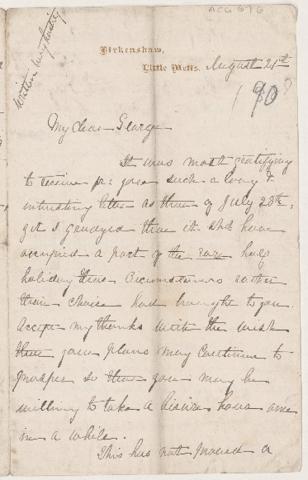 ACG 676
Written
Birkenshaw,
Little Metis,
August 21st
190
My dear George
It was most gratifying
to receive fr: you such a long &
interesting letter as that of July 28th,
yet I grudged that it shd have
occupied a part of the rare half
holiday that circumstances rather
than choice had brought to you.
Accept my thanks with the wish
that your plans may continue to
prosper so that you may be
willing to take a leisure hour once
in a while.
This has not proved a